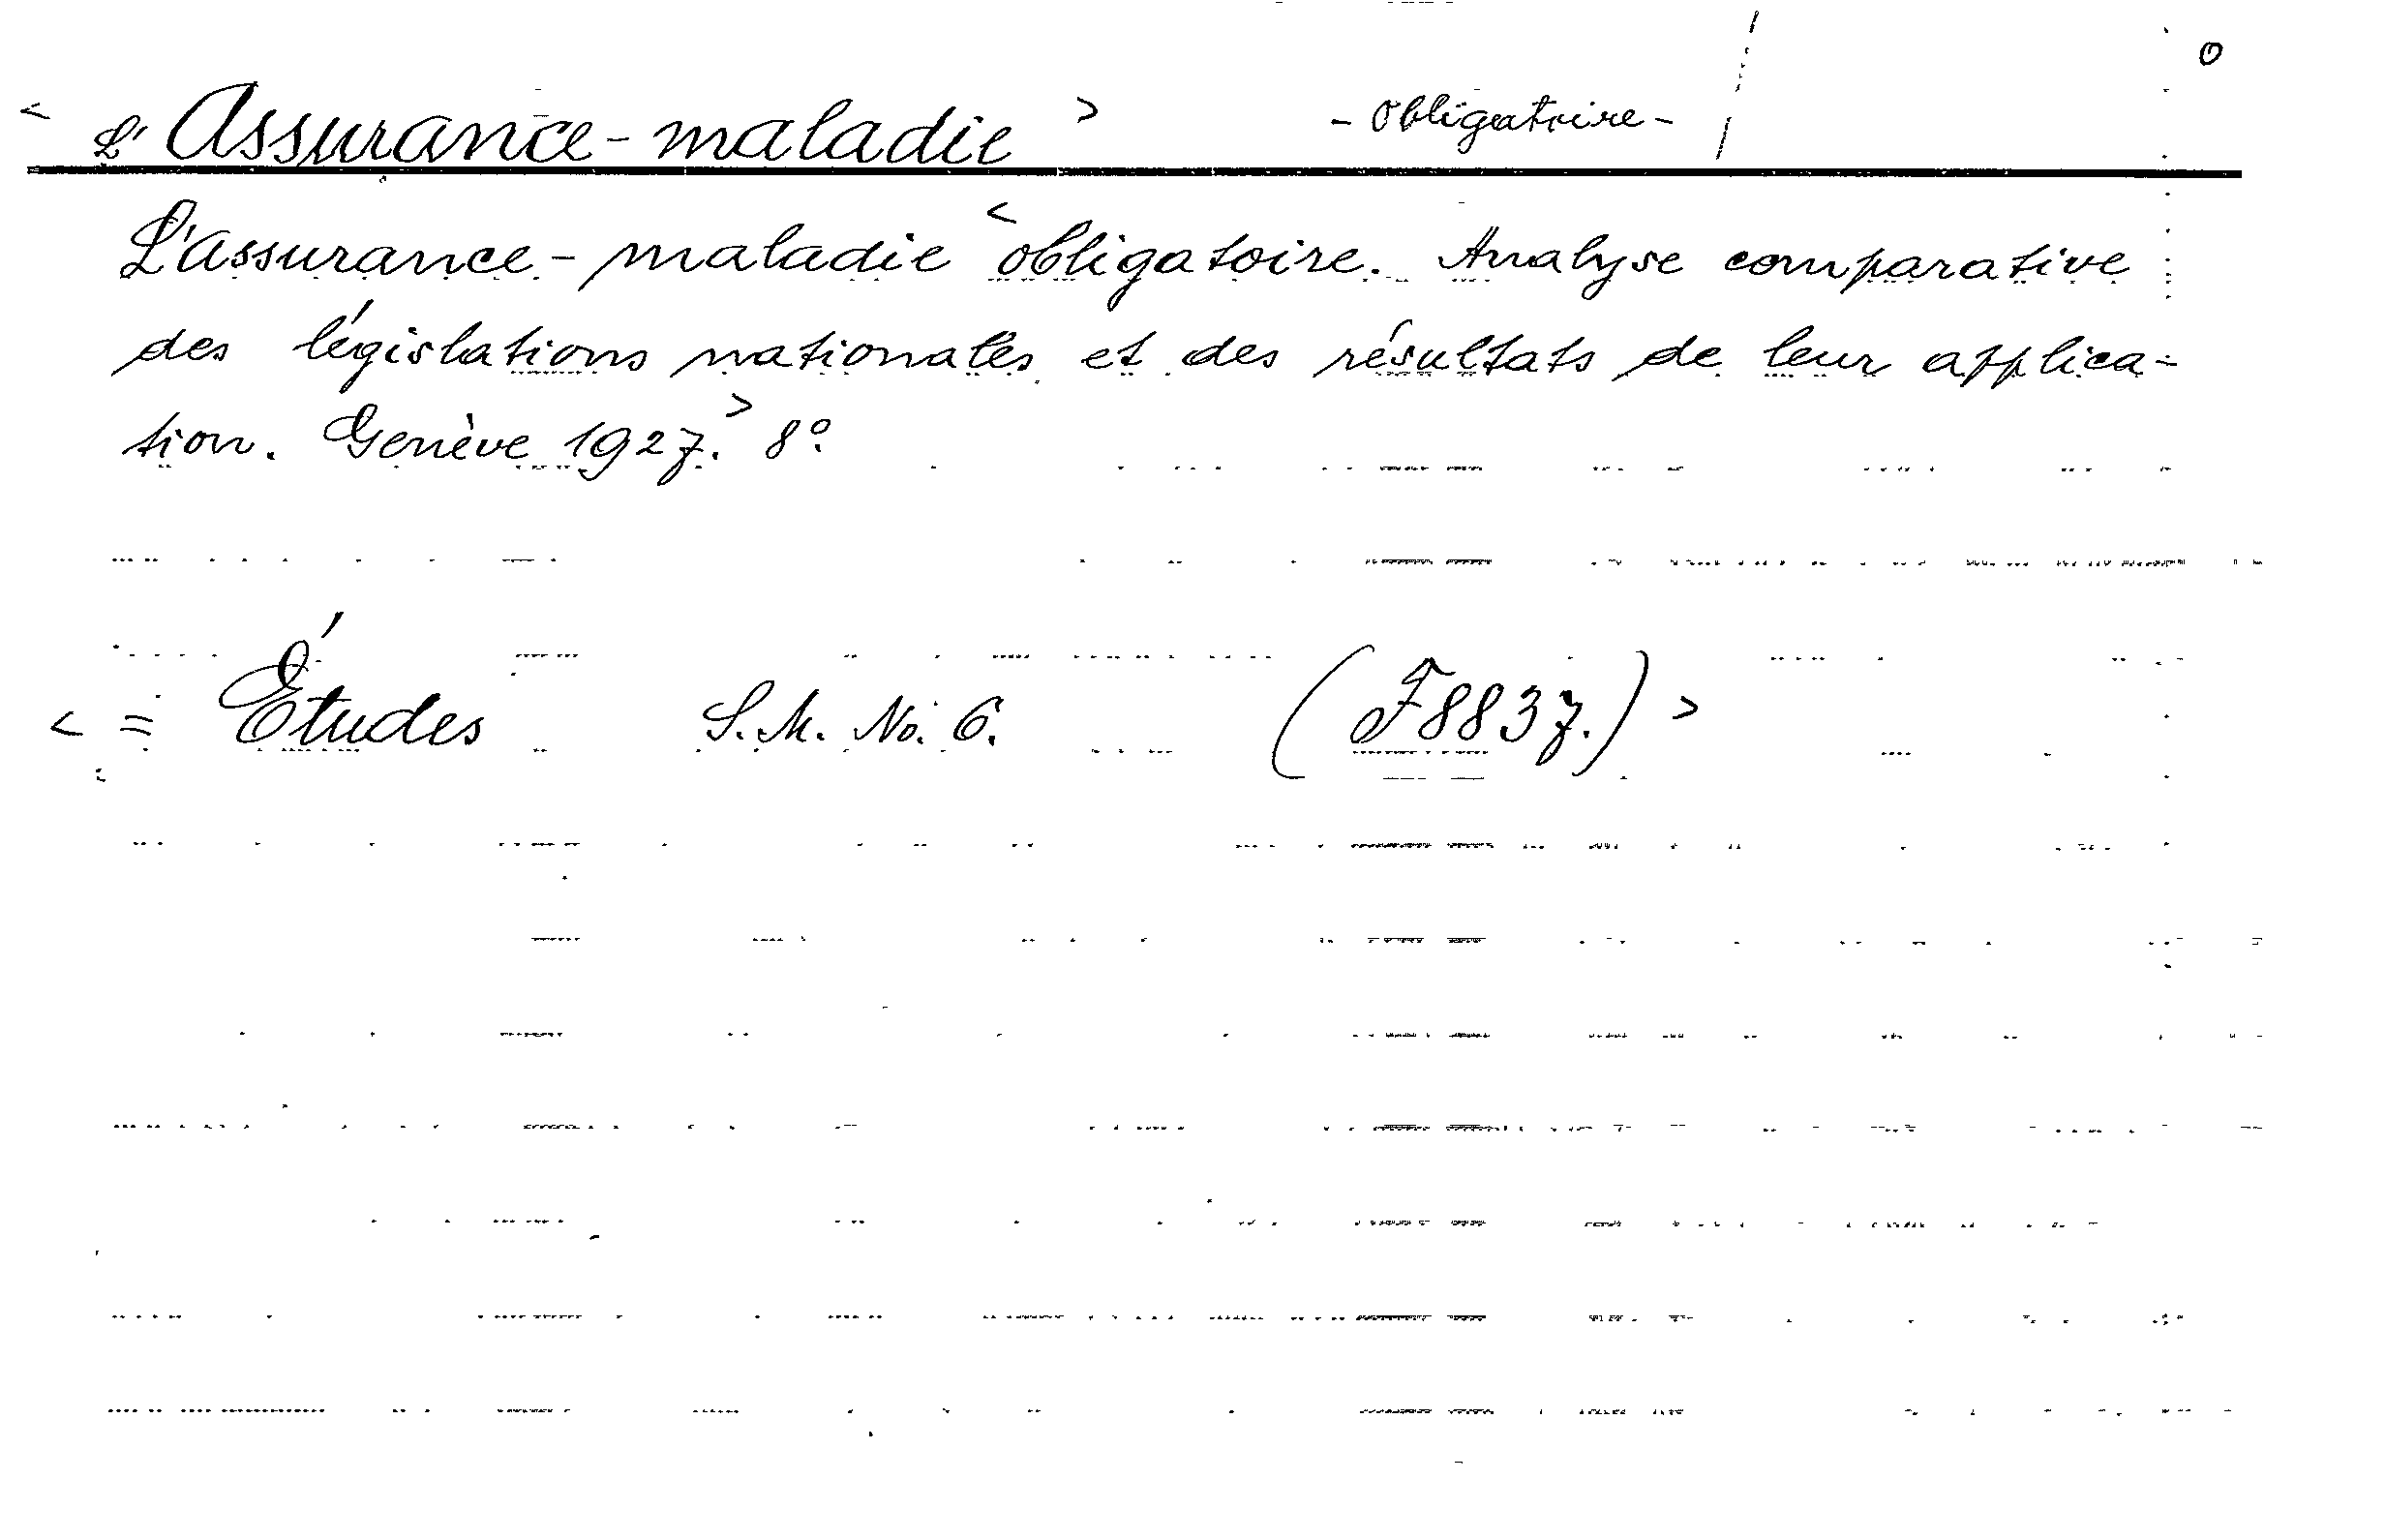 < L'Assurance-maladie > - obligatoire - / o
L'assurance-maladie <obligatoire. Analyse comparative
des législations nationales et des résultats de leur applica-
tion. Genève 1927.> 8°.
< = Études S. M. No. 6. (F 8837.) >